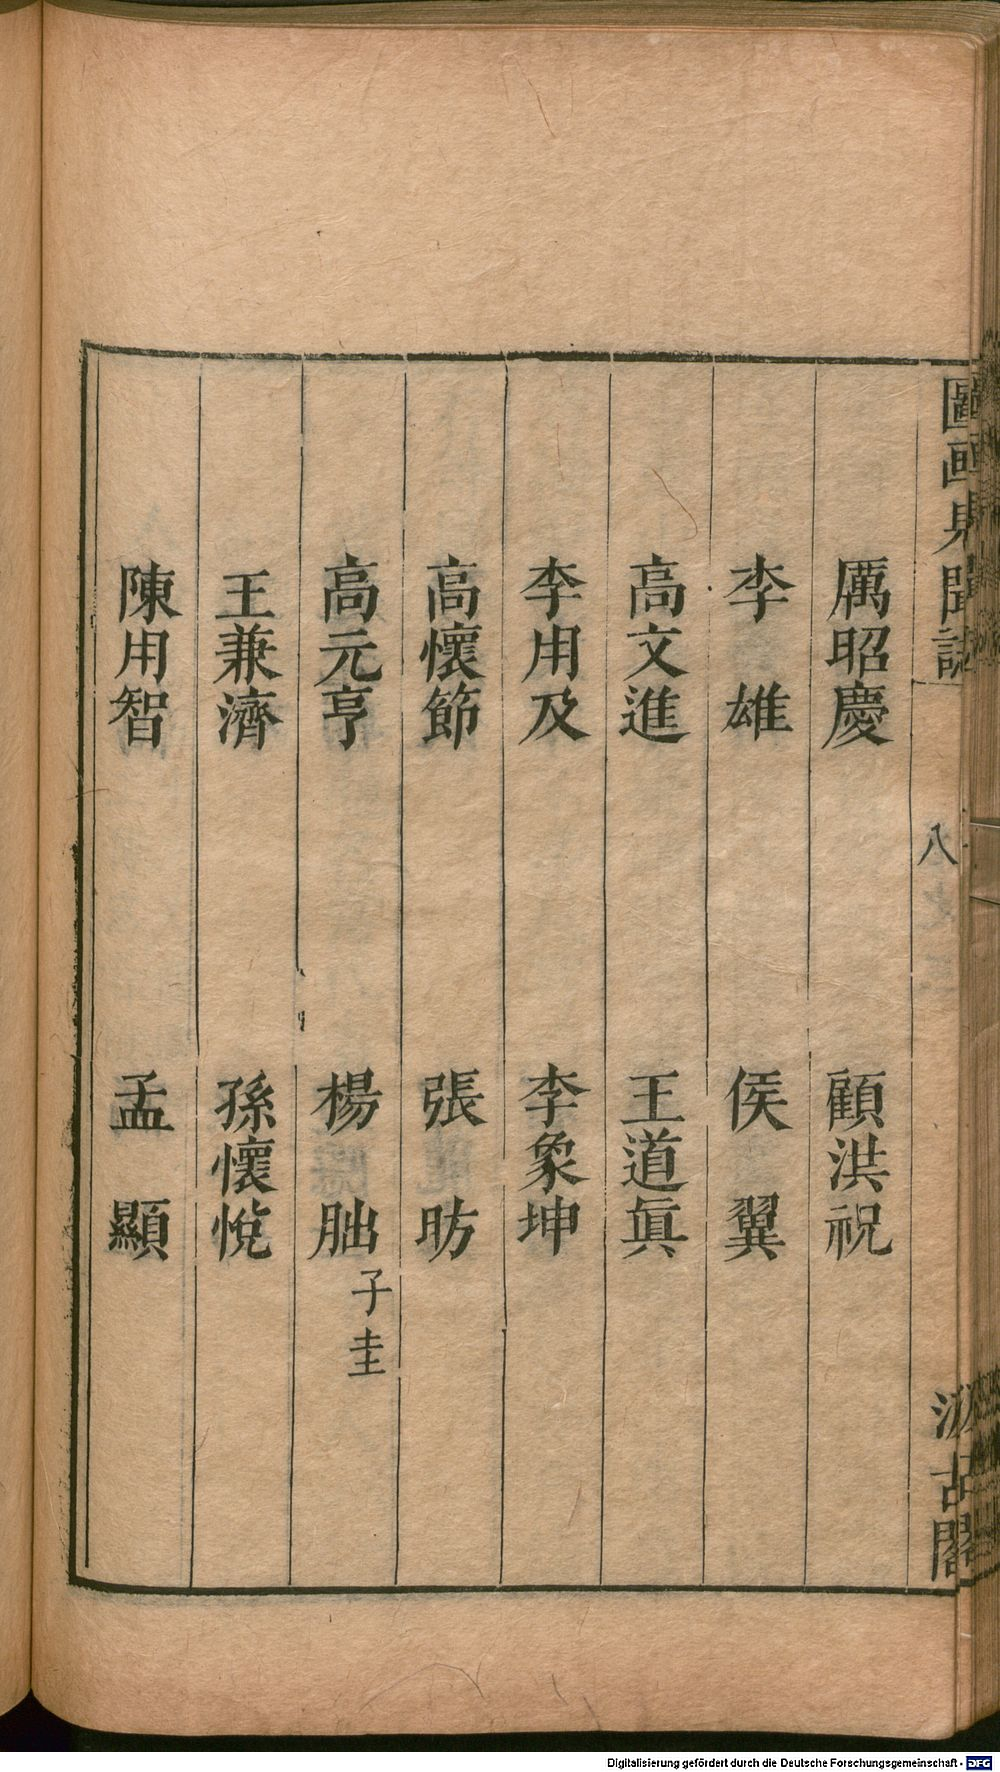 圖畫見聞誌
八
汲古閣
厲昭慶 顧洪祝
李 雄 侯 翼
高文進 王道眞
李用及 李象坤
高懷節 張 昉
高元亨 楊 朏 子圭
王兼濟 孫懷悅
陳用智 孟 顯
Digitalisierung gefördert durch die Deutsche Forschungsgemeinschaft - DFG